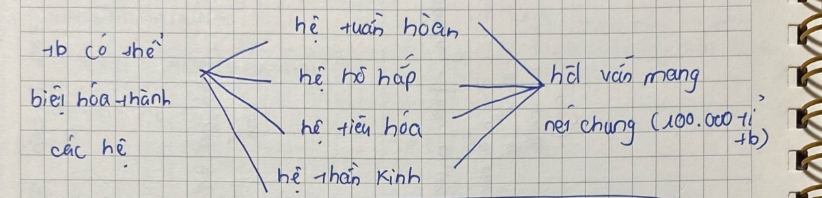 tb có thể
biệt hóa thành
các hệ
hệ tuần hoàn
hệ hô hấp
hệ tiêu hóa
hệ thần kinh
hđ vẫn mang
nét chung (100.000 tỉ
tb)